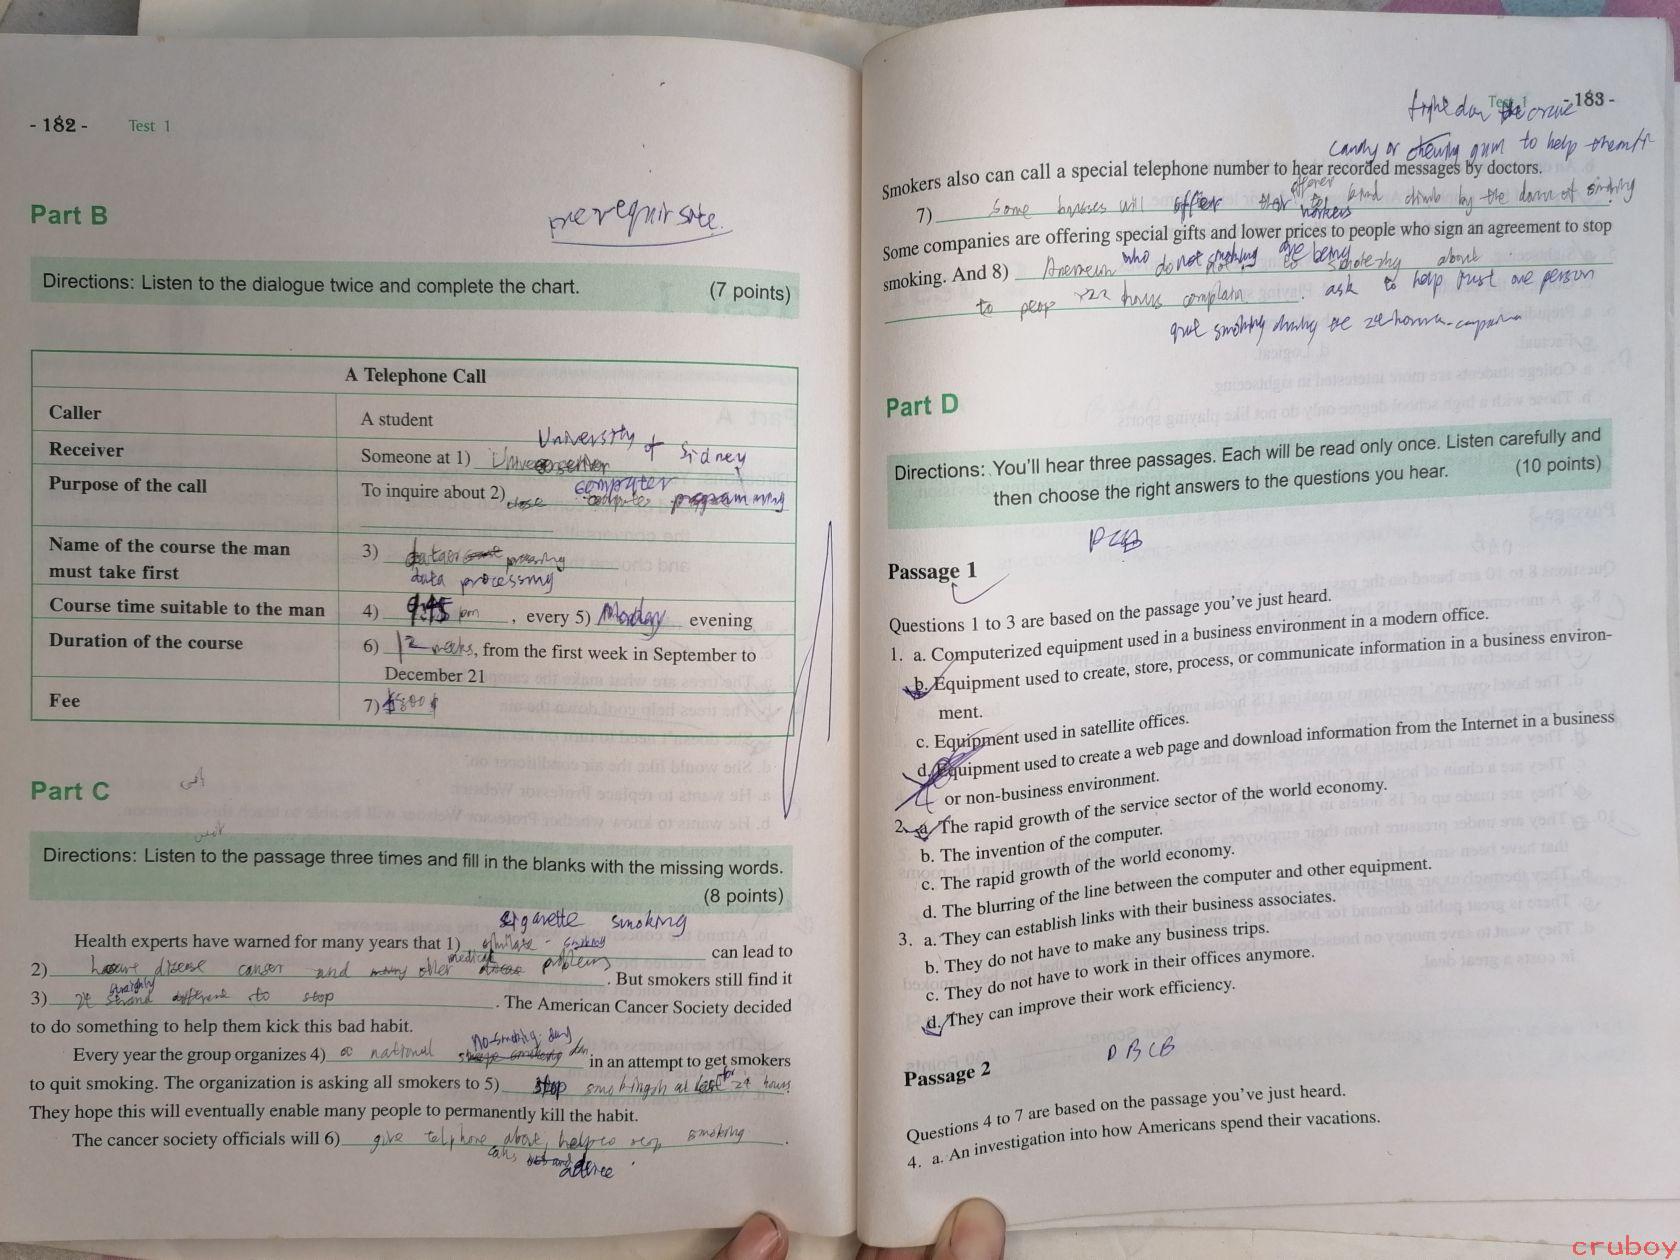 - 182 - Test 1
Part B
prerequirsite.
Directions: Listen to the dialogue twice and complete the chart. (7 points)
A Telephone Call
Caller A student
University of Sidney
Receiver Someone at 1)
computer
Purpose of the call To inquire about 2) programming
Name of the course the man must take first 3)
data processing
Course time suitable to the man 4) pm , every 5) Monday evening
Duration of the course 6) 12 weeks, from the first week in September to
December 21
Fee 7)
Part C
Directions: Listen to the passage three times and fill in the blanks with the missing words.
(8 points)
cigarette smoking
Health experts have warned for many years that 1) can lead to
medical
2) disease cancer and other problems . But smokers still find it
3) to stop . The American Cancer Society decided
to do something to help them kick this bad habit.
no-smoking day
Every year the group organizes 4) a national in an attempt to get smokers
to quit smoking. The organization is asking all smokers to 5) stop smoking at least for 24 hours.
They hope this will eventually enable many people to permanently kill the habit.
The cancer society officials will 6) give telphone smoking .
calls
Test 1 - 183 -
candy or chewing gum to help them
Smokers also can call a special telephone number to hear recorded messages by doctors.
7) Some will offer by the of smoking
workers
Some companies are offering special gifts and lower prices to people who sign an agreement to stop
who do not smoking are being
smoking. And 8) about
to hours complain . ask to help just one person
quit smoking during 24-hours
Part D
Directions: You'll hear three passages. Each will be read only once. Listen carefully and
then choose the right answers to the questions you hear. (10 points)
Passage 1
Questions 1 to 3 are based on the passage you've just heard.
1. a. Computerized equipment used in a business environment in a modern office.
b. Equipment used to create, store, process, or communicate information in a business environ-
ment.
c. Equipment used in satellite offices.
d. Equipment used to create a web page and download information from the Internet in a business
or non-business environment.
2. a. The rapid growth of the service sector of the world economy.
b. The invention of the computer.
c. The rapid growth of the world economy.
d. The blurring of the line between the computer and other equipment.
3. a. They can establish links with their business associates.
b. They do not have to make any business trips.
c. They do not have to work in their offices anymore.
d. They can improve their work efficiency.
D B C B
Passage 2
Questions 4 to 7 are based on the passage you've just heard.
4. a. An investigation into how Americans spend their vacations.
cruboy